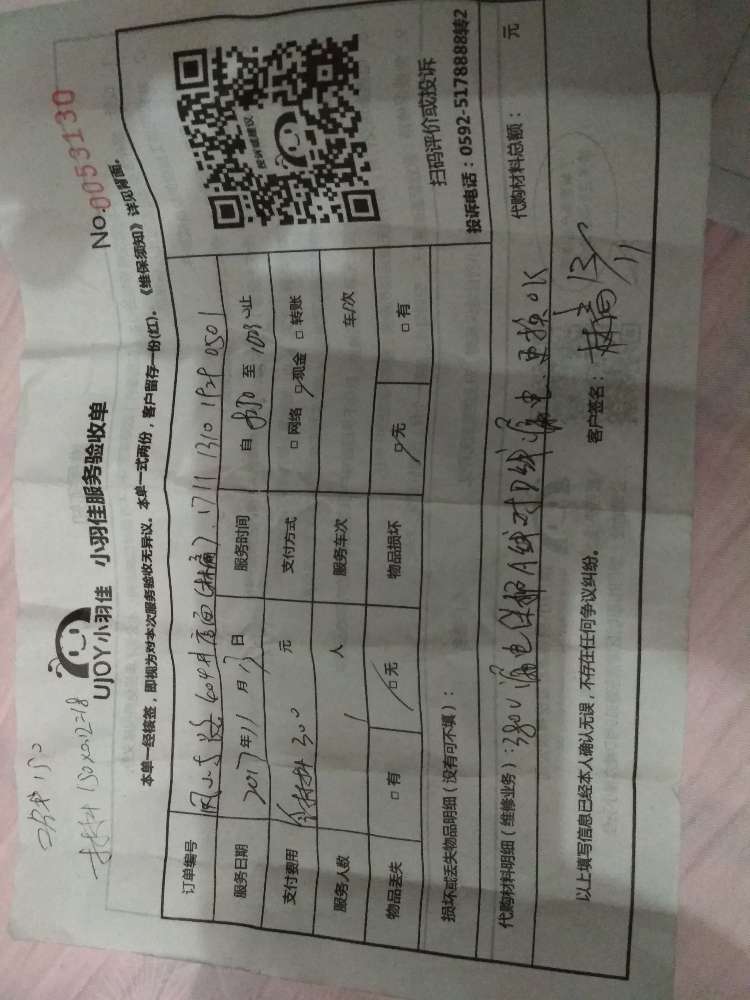 工费150
材料150×0.12=18
UJOY小羽佳 小羽佳服务验收单
No.0053130
本单一经核签，即视方对本次服务验收无异议。本单一式两份，客户留存一份(红)。《维保须知》详见背面。
订单编号 604 17111310192 90501
服务日期 2017年11月13日 服务时间 自 830 至 1030 止
支付费用 含材料300 元 支付方式 □网络 ☑现金 □转账
服务人数 1 人 服务车次 车/次
物品丢失 □有 ☑无 物品损坏 ☑无 □有
投诉或建议
扫码评价或投诉
投诉电话：0592-5178888转2
损坏或丢失物品明细（没有可不填）：
代购材料明细（维修业务）：380V漏电保护A线对 线漏电．更换OK
代购材料总额： 元
以上填写信息已经本人确认无误，不存在任何争议纠纷。
客户签名： 13/11